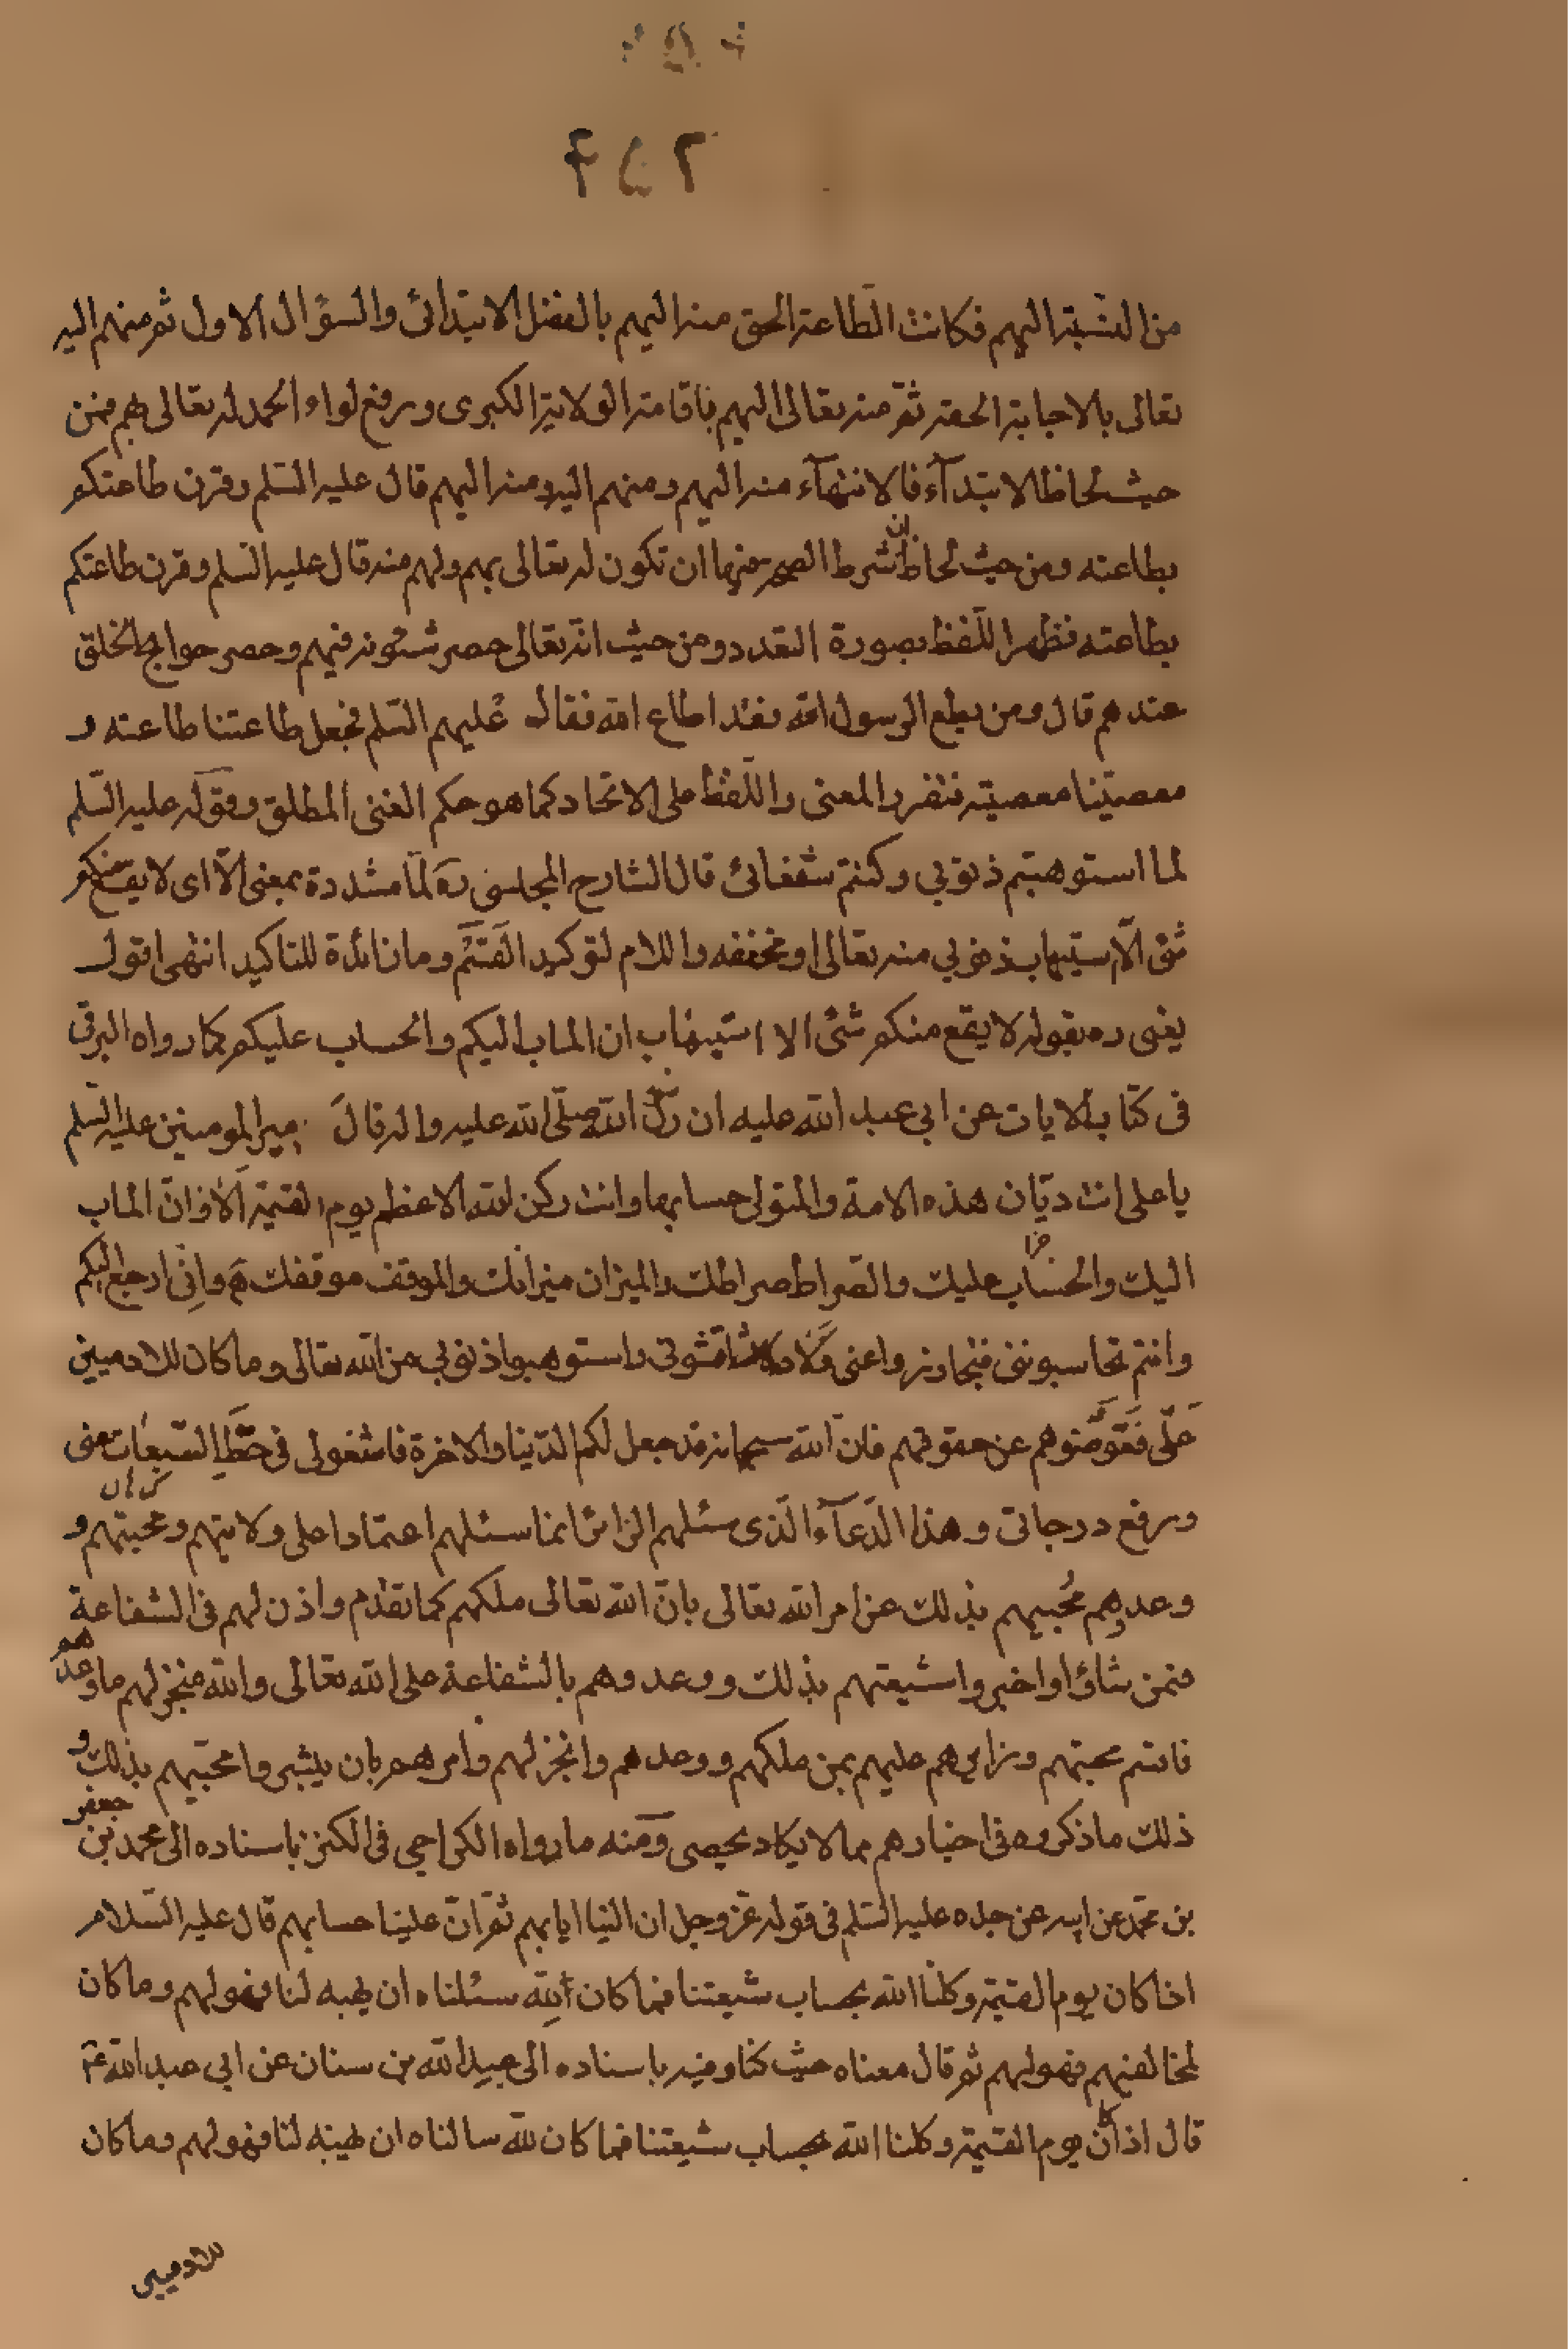 من النسبة اليهم فكانت الطاعة الحق منه اليهم بالفضل الابتدائى والسؤال الاول ثم منهم اليه
تعالى بالاجابة الحقه ثم منه تعالى اليهم باقامة الولاية الكبرى ورفع لواء الحمد له تعالى بهم فمن
حيث لحاظ الابتدآء فالانتهآء منه اليهم ومنهم اليه ومنه اليهم قال عليه السّلم وقرن طاعتكم
بطاعته ومن حيث لحاظ ان شرط الصحة منها ان تكون له تعالى بهم ولهم منه قال عليه السّلم وقرن طاعتكم
بطاعته فظهر اللّفظ بصورة التعدد ومن حيث انّه تعالى حصر شئونه فيهم وحصر حوائج الخلق
عندهم قال ومن يطع الرسول فقد اطاع الله فقال عليهم السّلم فجعل طاعتنا طاعته و
معصيتنا معصيته فتفرد المعنى واللّفظ على الاتحاد كما هو حكم الغنى المطلق وقوله عليه السّلم
لما استوهبتم ذنوبي وكنتم شفعائى قال الشارح المجلسى ره لمّا مشددة بمعنى الّا اى لا يقع منكم
شئ الّا استيهاب ذنوبي منه تعالى او مخففه واللام لتوكيد القسم وما زائدة للتاكيد انتهى اقول
يعنى ره بقوله لا يقع منكم شئ الا استيهاب ان الماب اليكم والحساب عليكم كما رواه البرقى
فى كتاب الايات عن ابي عبد الله عليه ان رسول الله صلّى الله عليه واله قال لامير المومنين عليه السّلم
يا على انت ديّان هذه الامة والمتولى حسابها وانت ركن الله الاعظم يوم القيمة الا وانّ الماب
اليك والحساب عليك والصّراط صراطك والميزان ميزانك والموقف موقفك وانّى ارجع اليكم
وانتم تحاسبوننى فتجاوزوا عنى واستوهبوا ذنوبي من الله تعالى وما كان للادميين
علىّ فعوّضوهم عن حقوقهم فانّ الله سبحانه قد جعل لكم الدّنيا والاخرة فاشفعوا لى فى حطّ السّيئات عنى
ورفع درجاتى وهذا الدّعآء الّذى سئلهم الزائر انما سئلهم اعتمادا على ولايتهم ومحبتهم و
وعدهم محبيهم بذلك عن امر الله تعالى بانّ الله تعالى ملكهم كما تقدم واذن لهم فى الشفاعة
فمن شاؤا واخبروا شيعتهم بذلك ووعدوهم بالشفاعة على الله تعالى والله منجز لهم ما وعدهم
فاقسم محبتهم وزائرهم عليهم بمن ملكهم ووعدهم وانجز لهم وامرهم بان يبشروا محبيهم بذلك و
ذلك ما ذكروه فى اخبارهم مما لا يكاد يحصى ومنه ما رواه الكراجي فى الكنز باسناده الى محمد بن جعفر
بن محمد عن ابيه عن جده عليه السّلم فى قوله عزّ وجل ان الينا ايابهم ثم انّ علينا حسابهم قال عليه السّلام
اذا كان يوم القيمة وكلنا الله بحساب شيعتنا فما كان لله سئلناه ان يهبه لنا فهو لهم وما كان
لمخالفيهم فهو لهم ثم قال معناه حيث كنا وفيه باسناده الى عبد الله بن سنان عن ابي عبد الله ع
قال اذا كان يوم القيمة وكلنا الله بحساب شيعتنا فما كان لله سالناه ان يهبه لنا فهو لهم وما كان
للادميين